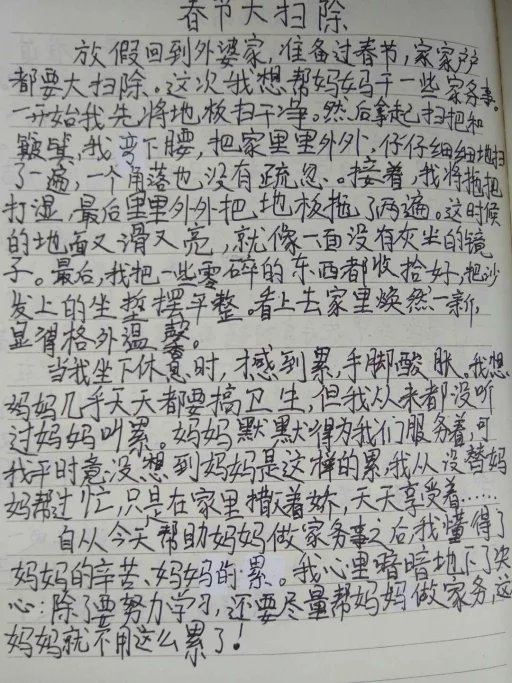 春节大扫除
放假回到外婆家，准备过春节，家家户户
都要大扫除。这次我想帮妈妈干一些家务事。
一开始我先将地板扫干净。然后拿起扫把和
簸箕，我弯下腰，把家里里外外，仔仔细细地扫
了一遍，一个角落也没有疏忽。接着，我将拖把
打湿，最后里里外外把地板拖了两遍。这时候
的地面又滑又亮，就像一面没有灰尘的镜
子。最后，我把一些零碎的东西都收拾好，把沙
发上的坐垫摆平整。看上去家里焕然一新，
显得格外温馨。
当我坐下休息时，感到累，手脚酸胀。我想
妈妈几乎天天都要搞卫生，但我从来都没听
过妈妈叫累。妈妈默默得为我们服务着，可
我平时竟没想到妈妈是这样的累，我从没替妈
妈帮过忙，只是在家里撒着娇，天天享受着……
自从今天帮助妈妈做家务事之后，我懂得了
妈妈的辛苦、妈妈的累。我心里暗暗地下了决
心：除了要努力学习，还要尽量帮妈妈做家务，这
妈妈就不用这么累了！